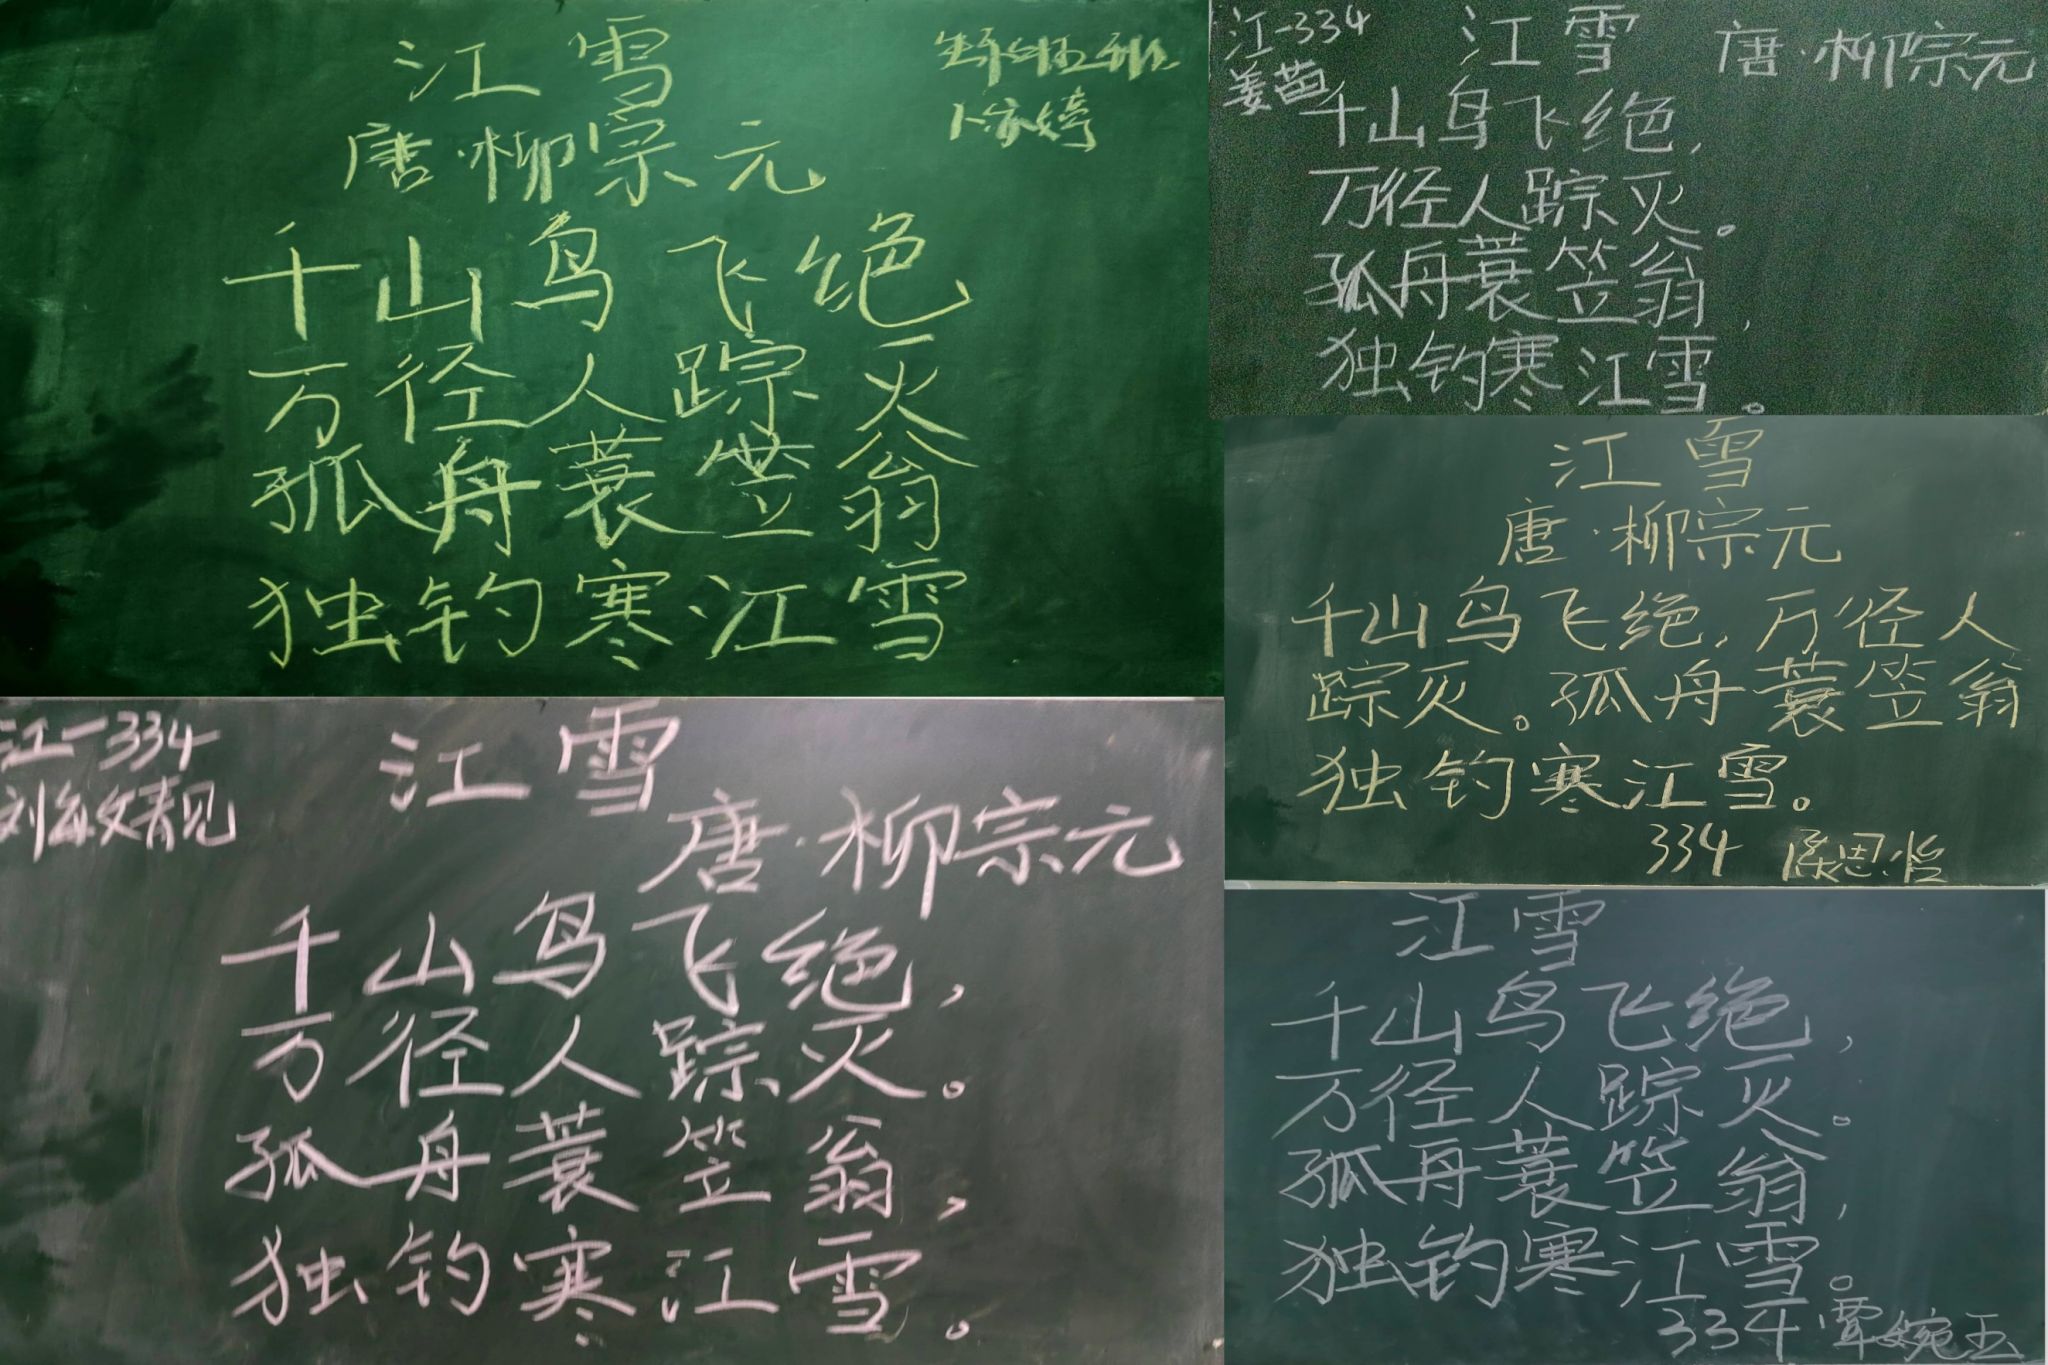 江雪
唐·柳宗元
千山鸟飞绝
万径人踪灭
孤舟蓑笠翁
独钓寒江雪
江-334
姜苗
江雪
唐·柳宗元
千山鸟飞绝,
万径人踪灭。
孤舟蓑笠翁,
独钓寒江雪。
江雪
唐·柳宗元
千山鸟飞绝,万径人
踪灭。孤舟蓑笠翁
独钓寒江雪。
334 陈思怡
江-334
江雪
唐·柳宗元
千山鸟飞绝,
万径人踪灭。
孤舟蓑笠翁,
独钓寒江雪。
江雪
千山鸟飞绝,
万径人踪灭。
孤舟蓑笠翁,
独钓寒江雪。
334 覃婉玉